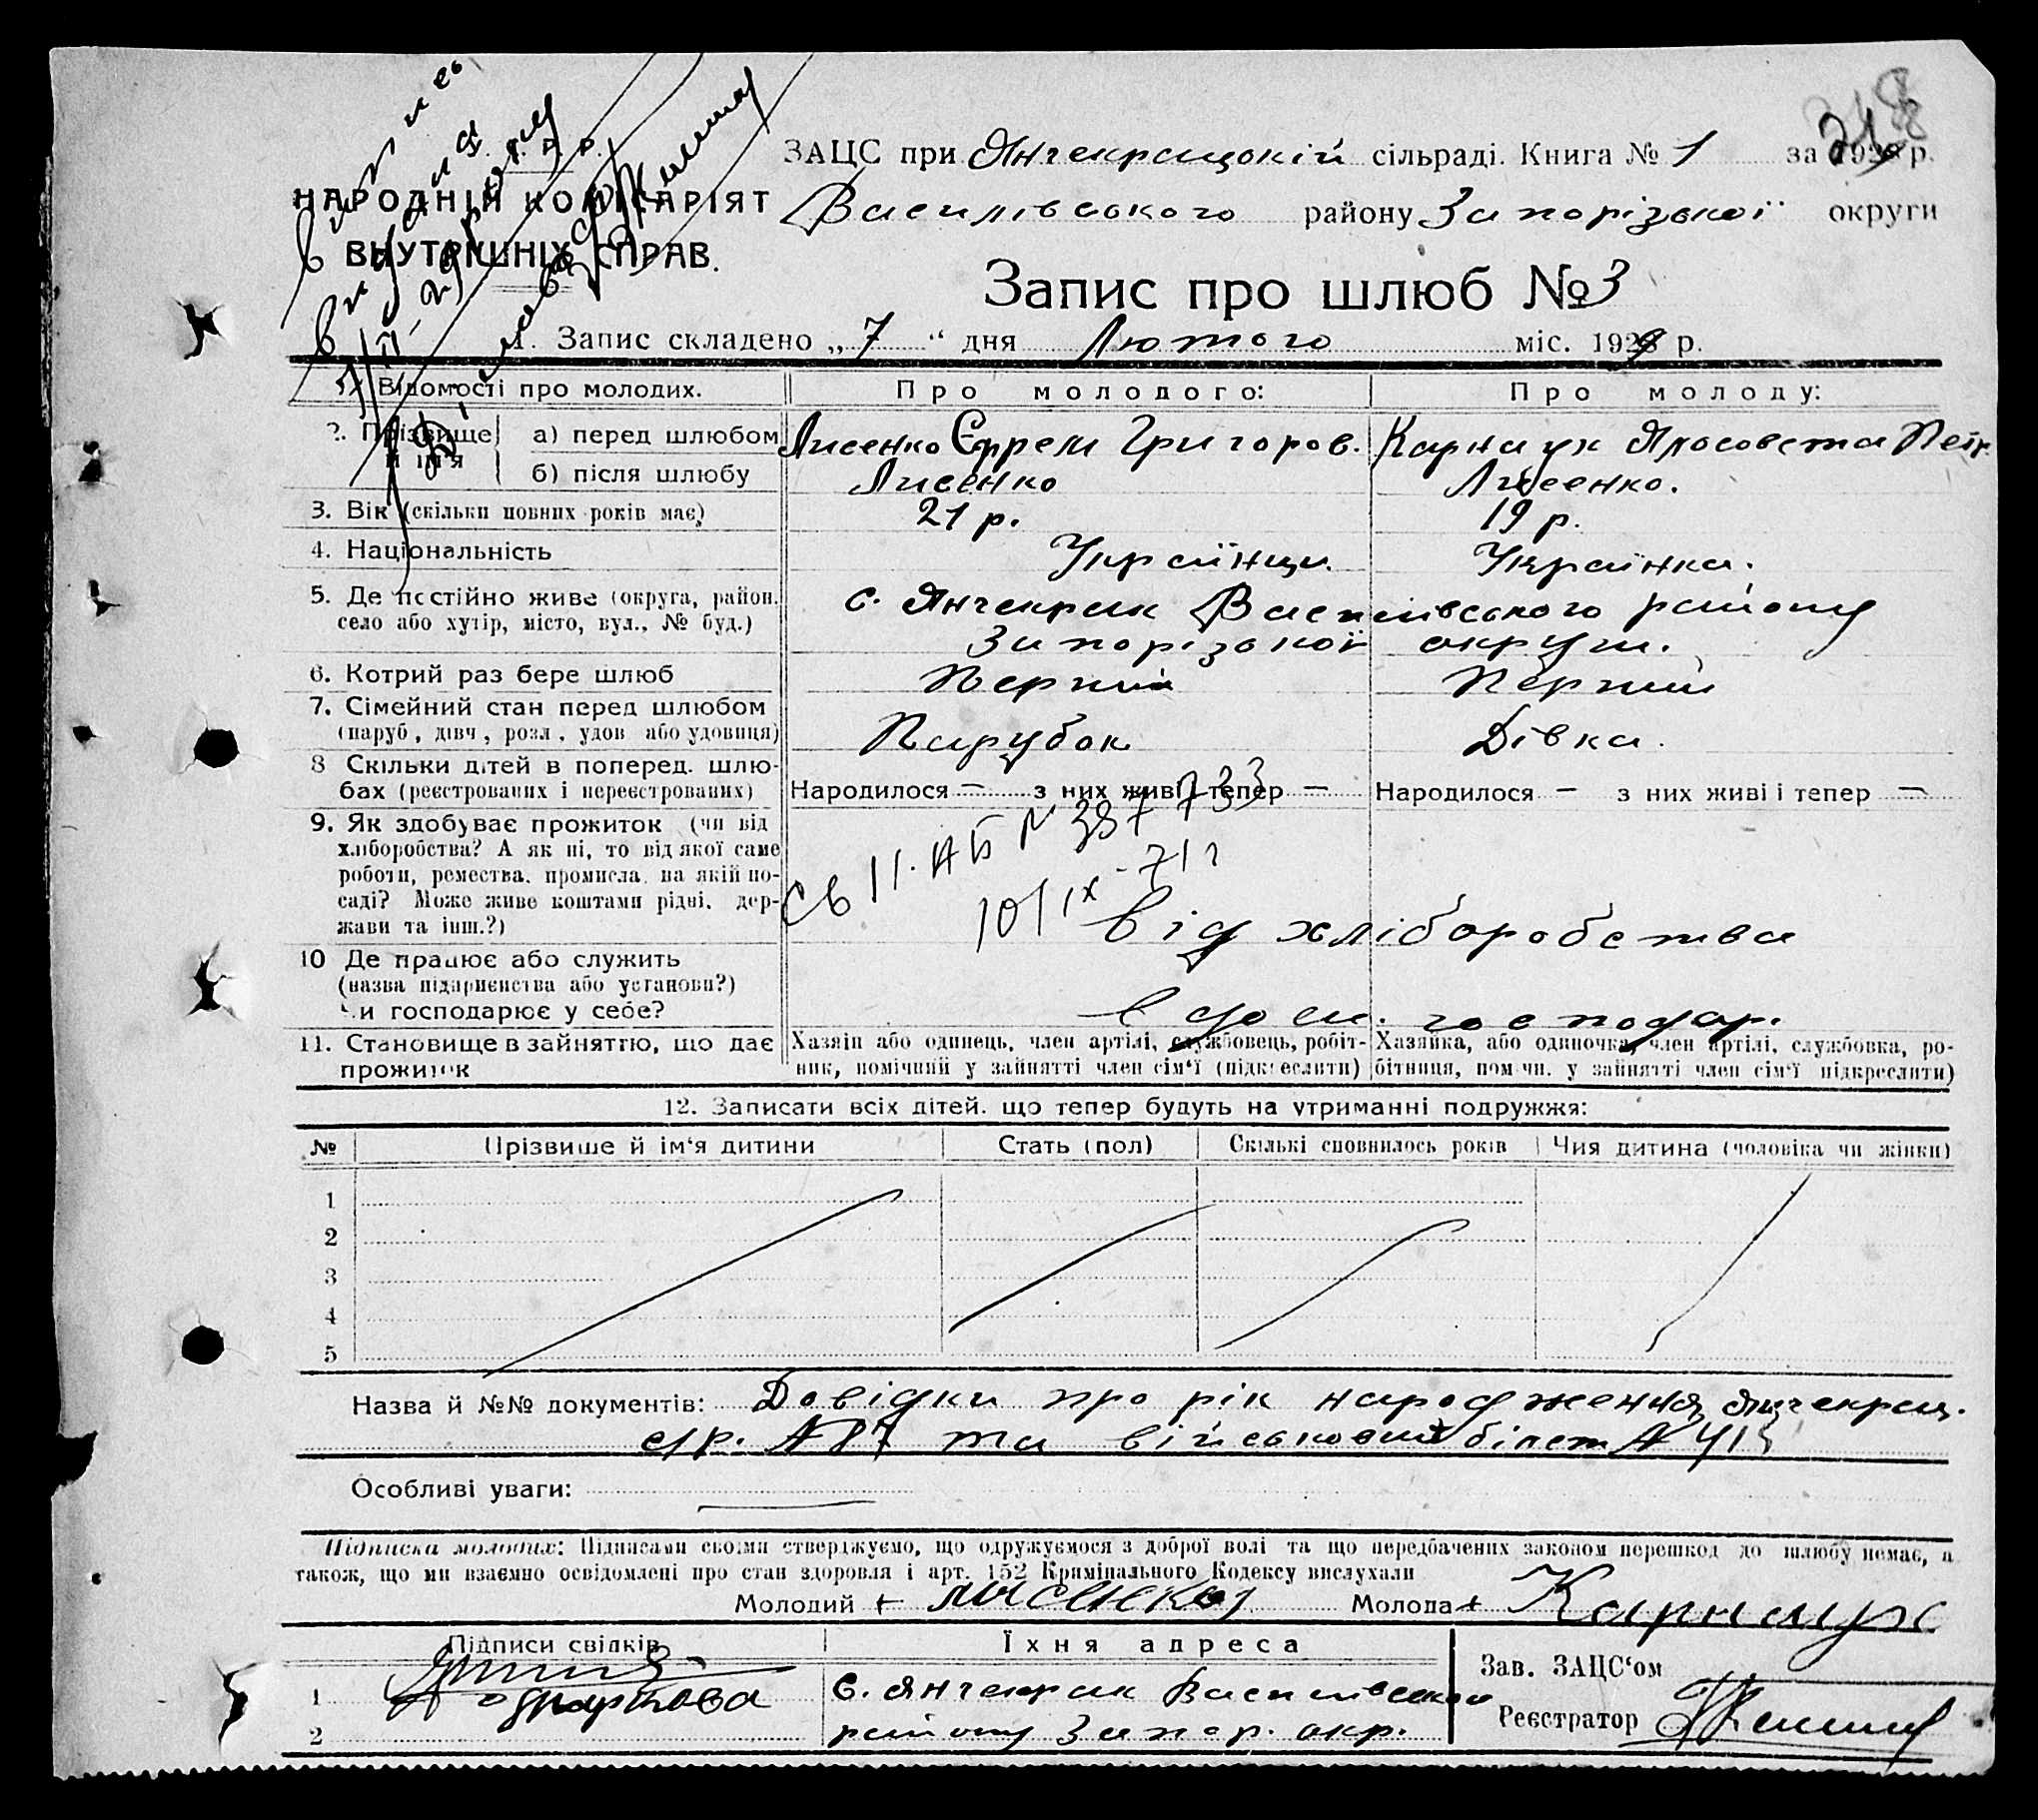 ЗАЦС при Янчекрацькій сільраді. Книга № 1 за р.
НАРОДНІЙ КОМІСАРІЯТ
ВНУТРІШНІХ СПРАВ.
Василівського району Запорізької округи
Запис про шлюб № 3
1. Запис складено „ 7 “ дня Лютого міс. 1929 р.
Відомості про молодих. Про молодого: Про молоду:
2. Прізвище й ім'я а) перед шлюбом Лисенко Єфрем Григоров. Карнаук Ялосовета Петр.
б) після шлюбу Лисенко Лисенко.
3. Вік (скільки повних років має) 21 р. 19 р.
4. Національність Українци. Українка.
5. Де постійно живе (округа, район, с. Янчекрак Василівського району
село або хутір, місто, вул., № буд.) Запорізької округи.
6. Котрий раз бере шлюб Перший Перший
7. Сімейний стан перед шлюбом
(паруб., дівч., розл., удов. або удовиця) Парубок Дівка.
8 Скільки дітей в поперед. шлю-
бах (реєстрованих і нереєстрованих) Народилося — з них живі і тепер — Народилося — з них живі і тепер —
9. Як здобуває прожиток (чи від
хліборобства? А як ні, то від якої саме
роботи, ремества, промисла, на якій по-
саді? Може живе коштами рідні, дер-
жави та інш.?) від хліборобства
Св II-АБ № 387733
10/IX-71 г
10 Де працює або служить
(назва підприємства або установи?)
Чи господарює у себе? в дом. господар.
11. Становище в зайняттю, що дає прожиток
Хазяїн або одинець, член артілі, службовець, робіт-
ник, помічний у зайнятті член сім'ї (підкреслити)
Хазяйка, або одиночка, член артілі, службовка, ро-
бітниця, пом-чн. у зайнятті член сім'ї підкреслити)
12. Записати всіх дітей, що тепер будуть на утриманні подружжя:
№ Прізвище й ім'я дитини Стать (пол) Скількі сповнилось років Чия дитина (чоловіка чи жінки)
1
2
3
4
5
Назва й №№ документів: Довідки про рік народження Янчекрац.
с/р. № 87 та військовий білет №
Особливі уваги:
Підписка молодих: Підписами своїми стверджуємо, що одружуємося з доброї волі та що передбачених законом перешкод до шлюбу немає, а
також, що ми взаємно освідомлені про стан здоровля і арт. 152 Кримінального Кодексу вислухали
Молодий + Лисенко Молода + Карнаух
Підписи свідків Їхня адреса
Зав. ЗАЦС'ом
1 с. Янчекрак Василівського
2 району Запор. окр.
Реєстратор